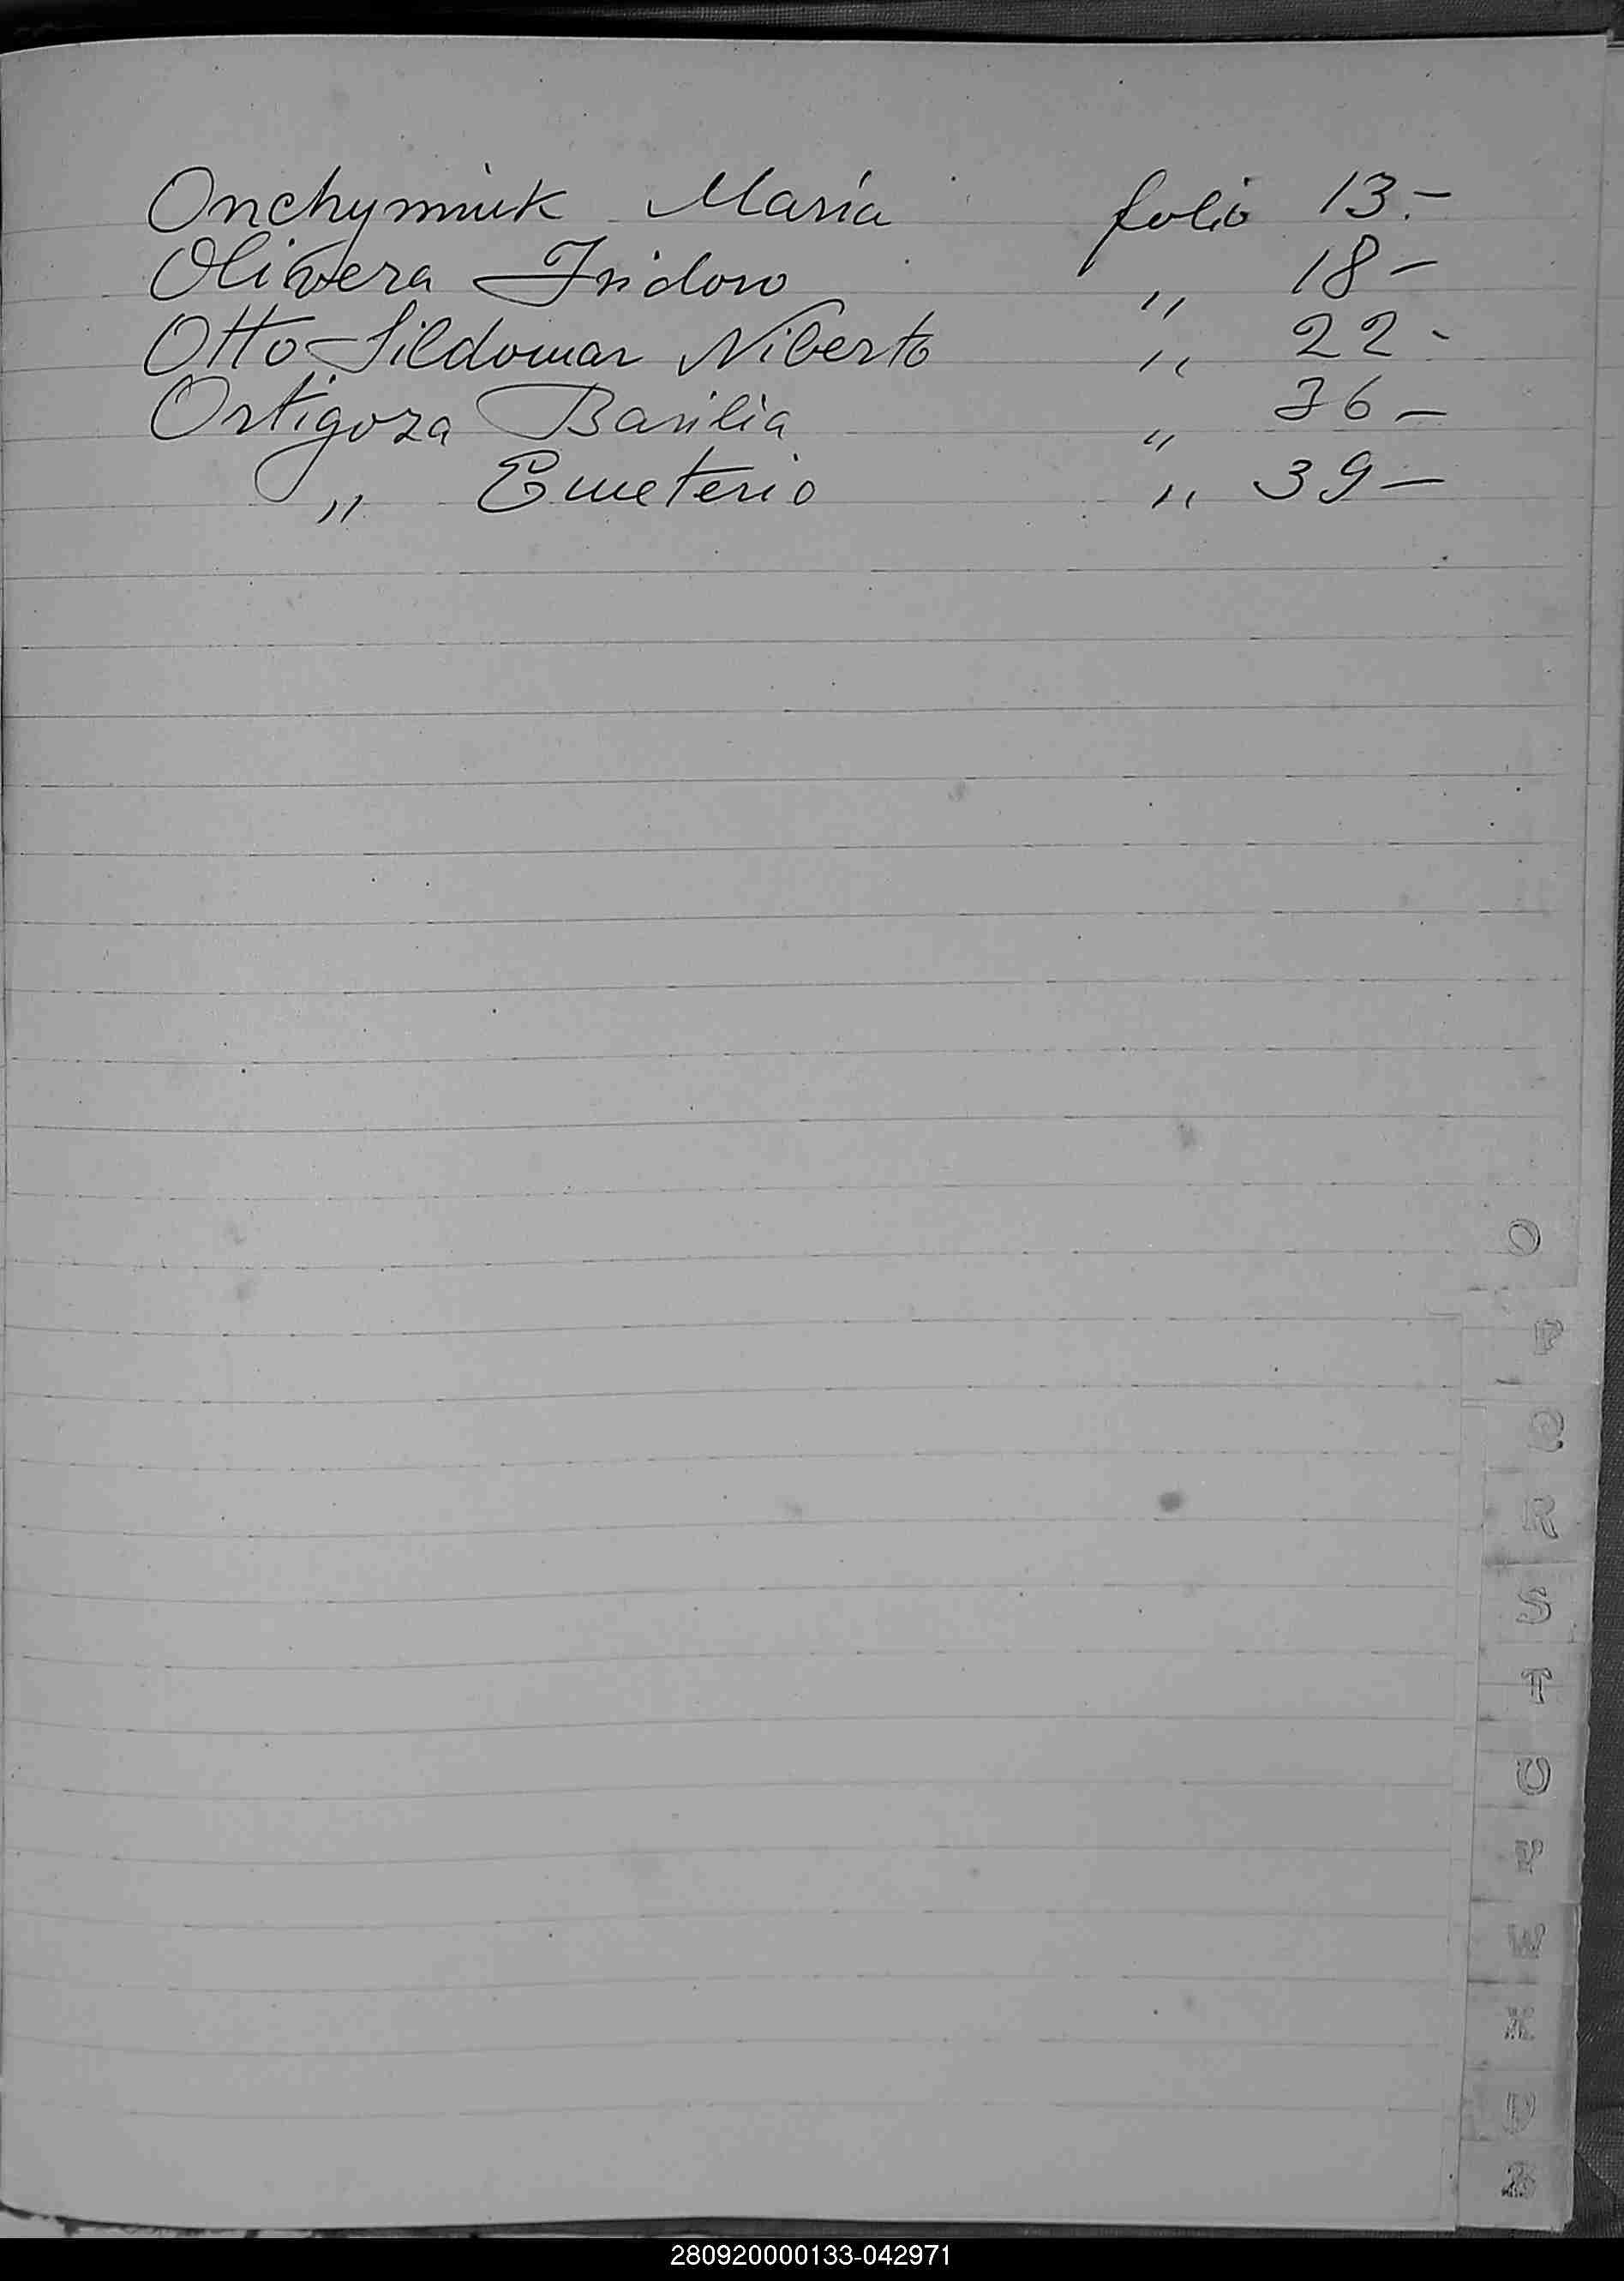 Onchymiuk María folio 13.-
Olivera Isidoro " 18-
Otto Sildomar Niberto " 22-
Ortigoza Basilia " 36-
" Emeterio " 39-
O
P
Q
R
S
T
U
V
W
X
Z
280920000133-042971